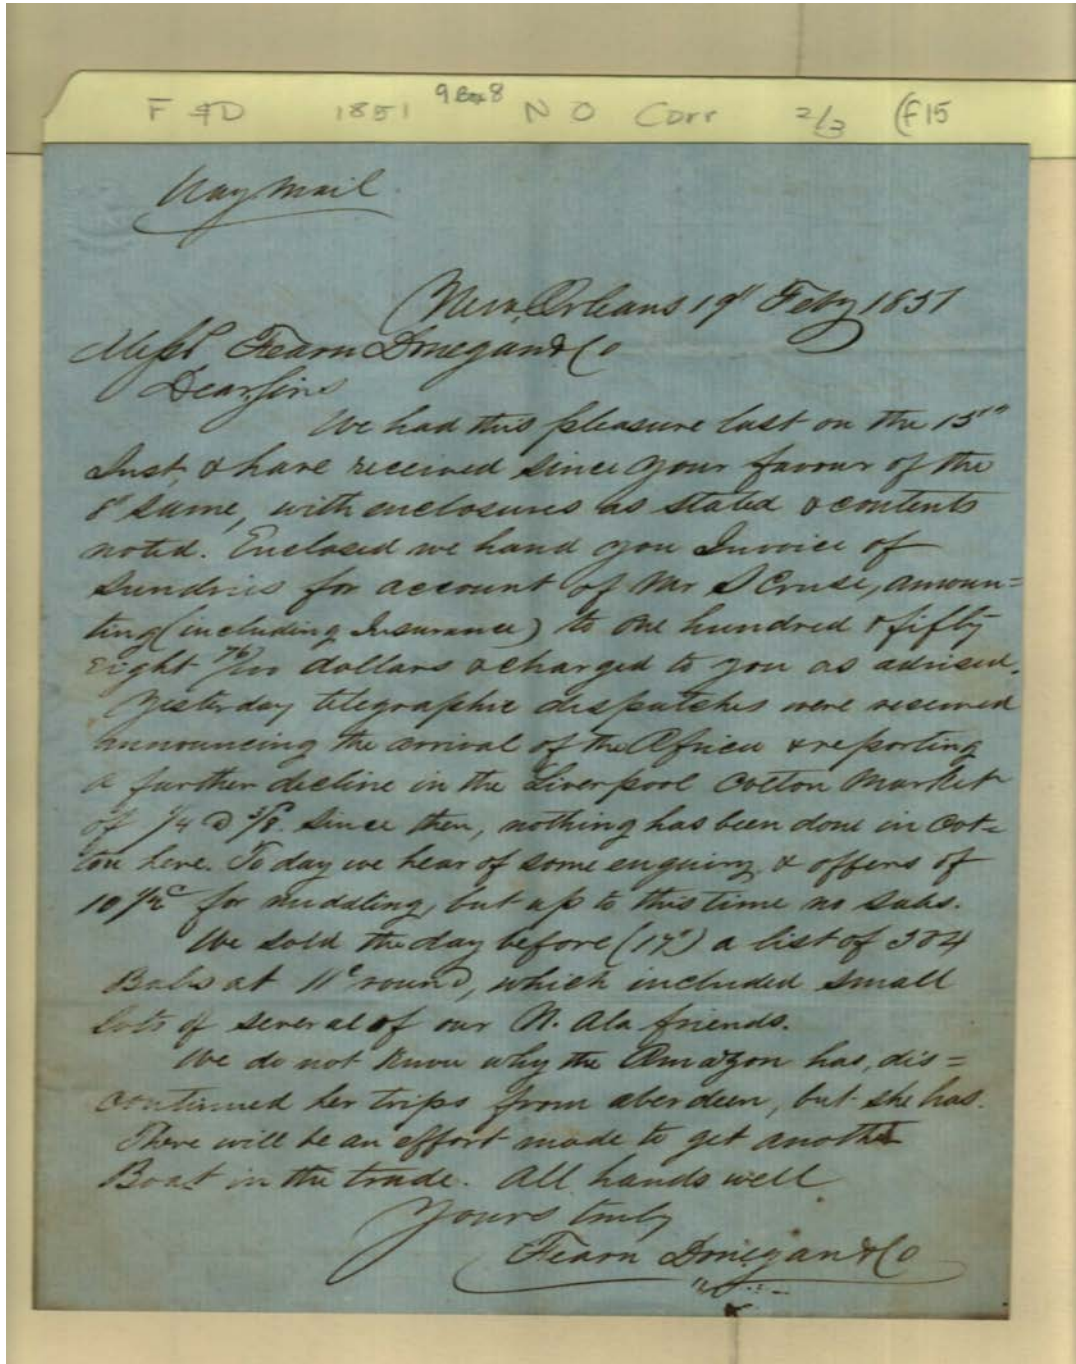 F & D 1851 9 Box 8 N O Corr 2/3 (F15
Way Mail
New Orleans 19th Feby 1851
Messrs Fearn Donegan & Co
Dear Sirs
We had this pleasure last on the 15th
Inst, & have received since your favour of the
8th same, with enclosures as stated & contents
noted. Enclosed we hand you Invoice of
Sundries for account of Mr S Cruse, amoun=
ting (including Insurance) to one hundred & fifty
Eight 76/100 dollars & charged to you as advised.
Yesterday telegraphic dispatches were received
announcing the arrival of the Africa & reporting
a further decline in the Liverpool Cotton Market
of 1/4 @ 3/8. Since then, nothing has been done in Cot=
ton here. To day we hear of some enquiry & offers of
10 1/2c for middling, but up to this time no sales.
We sold the day before (17th) a list of 304
Bales at 11c round, which included small
lots of several of our N. Ala friends.
We do not know why the Amazon has dis=
continued her trips from aberdeen, but she has.
There will be an effort made to get another
Boat in the trade. All hands well
Yours truly
Fearn Donegan & Co